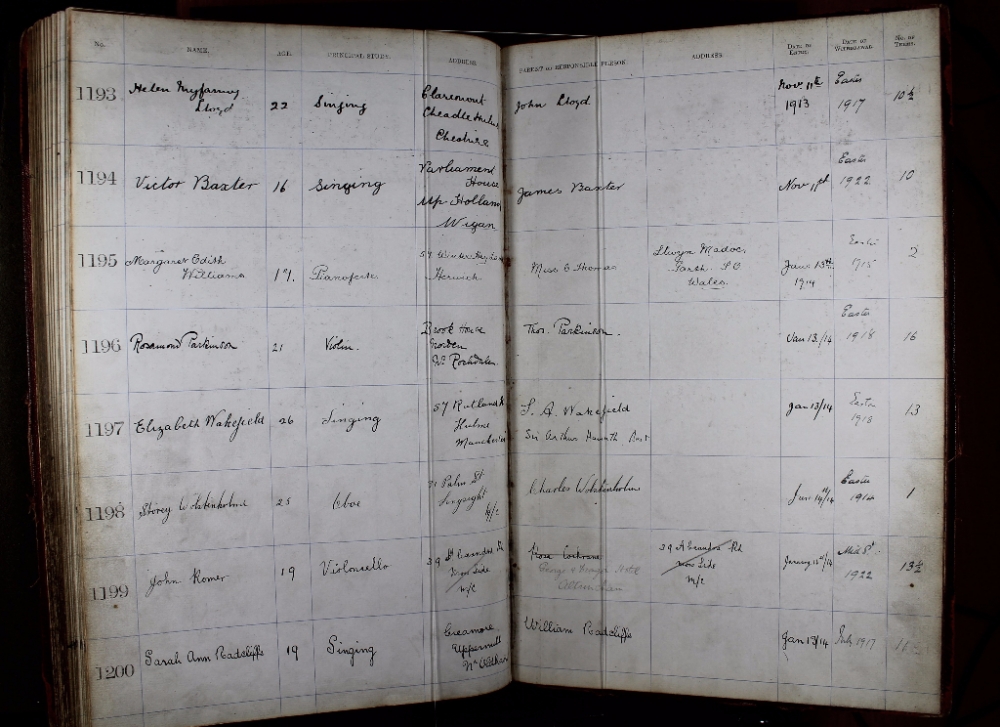 No. NAME. AGE. PRINCIPAL STUDY. ADDRESS. PARENT OR RESPONSIBLE PERSON ADDRESS. DATE OF ENTRY. DATE OF WITHDRAWAL NO. OF TERMS.
1193 Helen Myfanwy Lloyd 22 Singing Claremont Cheadle Hulme Cheshire John Lloyd Nov 11th 1913 Easter 1917 10½
1194 Victor Baxter 16 Singing Parliament House Up Holland, Wigan James Baxter Nov 11th Easter 1922 10
1195 Margaret Edith Williams 17. Pianoforte 57 Horwich Miss E Thomas Llwyn Madoc, Garth. S.O Wales. June 13th 1914 Easter 1915 2
1196 Rosamond Parkinson 21 Violin. Brook House Norden Nr Rochdale. Thos. Parkinson. Jan 13./14 Easter 1918 16
1197 Elizabeth Wakefield 26 Singing 57 Rutland St Hulme Manchester S. A. Wakefield Sir Arthur Jan 13/14 Easter 1918 13
1198 Storey Wolstenholme 25 Oboe 21 Palm St Longsight M/c Charles Wolstenholme Jan 14th/14 Easter 1914 1
1199 John Romer 19 Violoncello 39 St Moss Side M/c Rose Cochrane George & Dragon Hotel Altrincham 39 Alexandra Rd Moss Side M/c January 15th/14 Mid St. 1922 13½
1200 Sarah Ann Radcliffe 19 Singing Uppermill Nr Oldham William Radcliffe Jan 13/14 July 1917